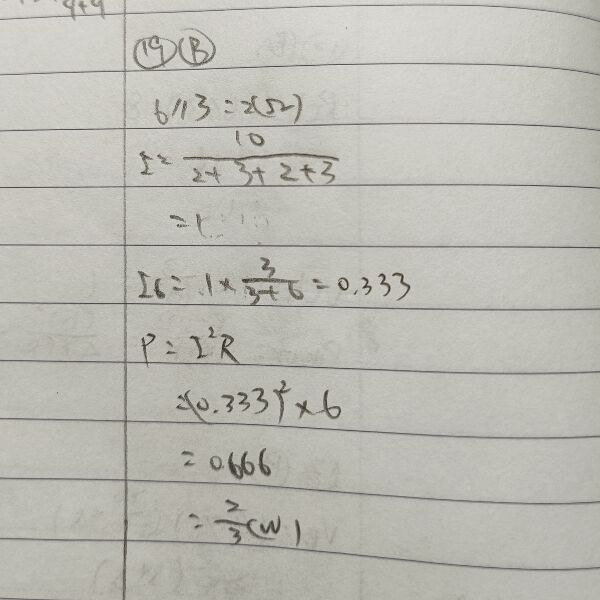 9+9
19 B
6//3=2(Ω)
I=10/(2+3+2+3)
=1
I6=1×3/(3+6)=0.333
P=I²R
=(0.333)²×6
=0.666
=2/3(W)